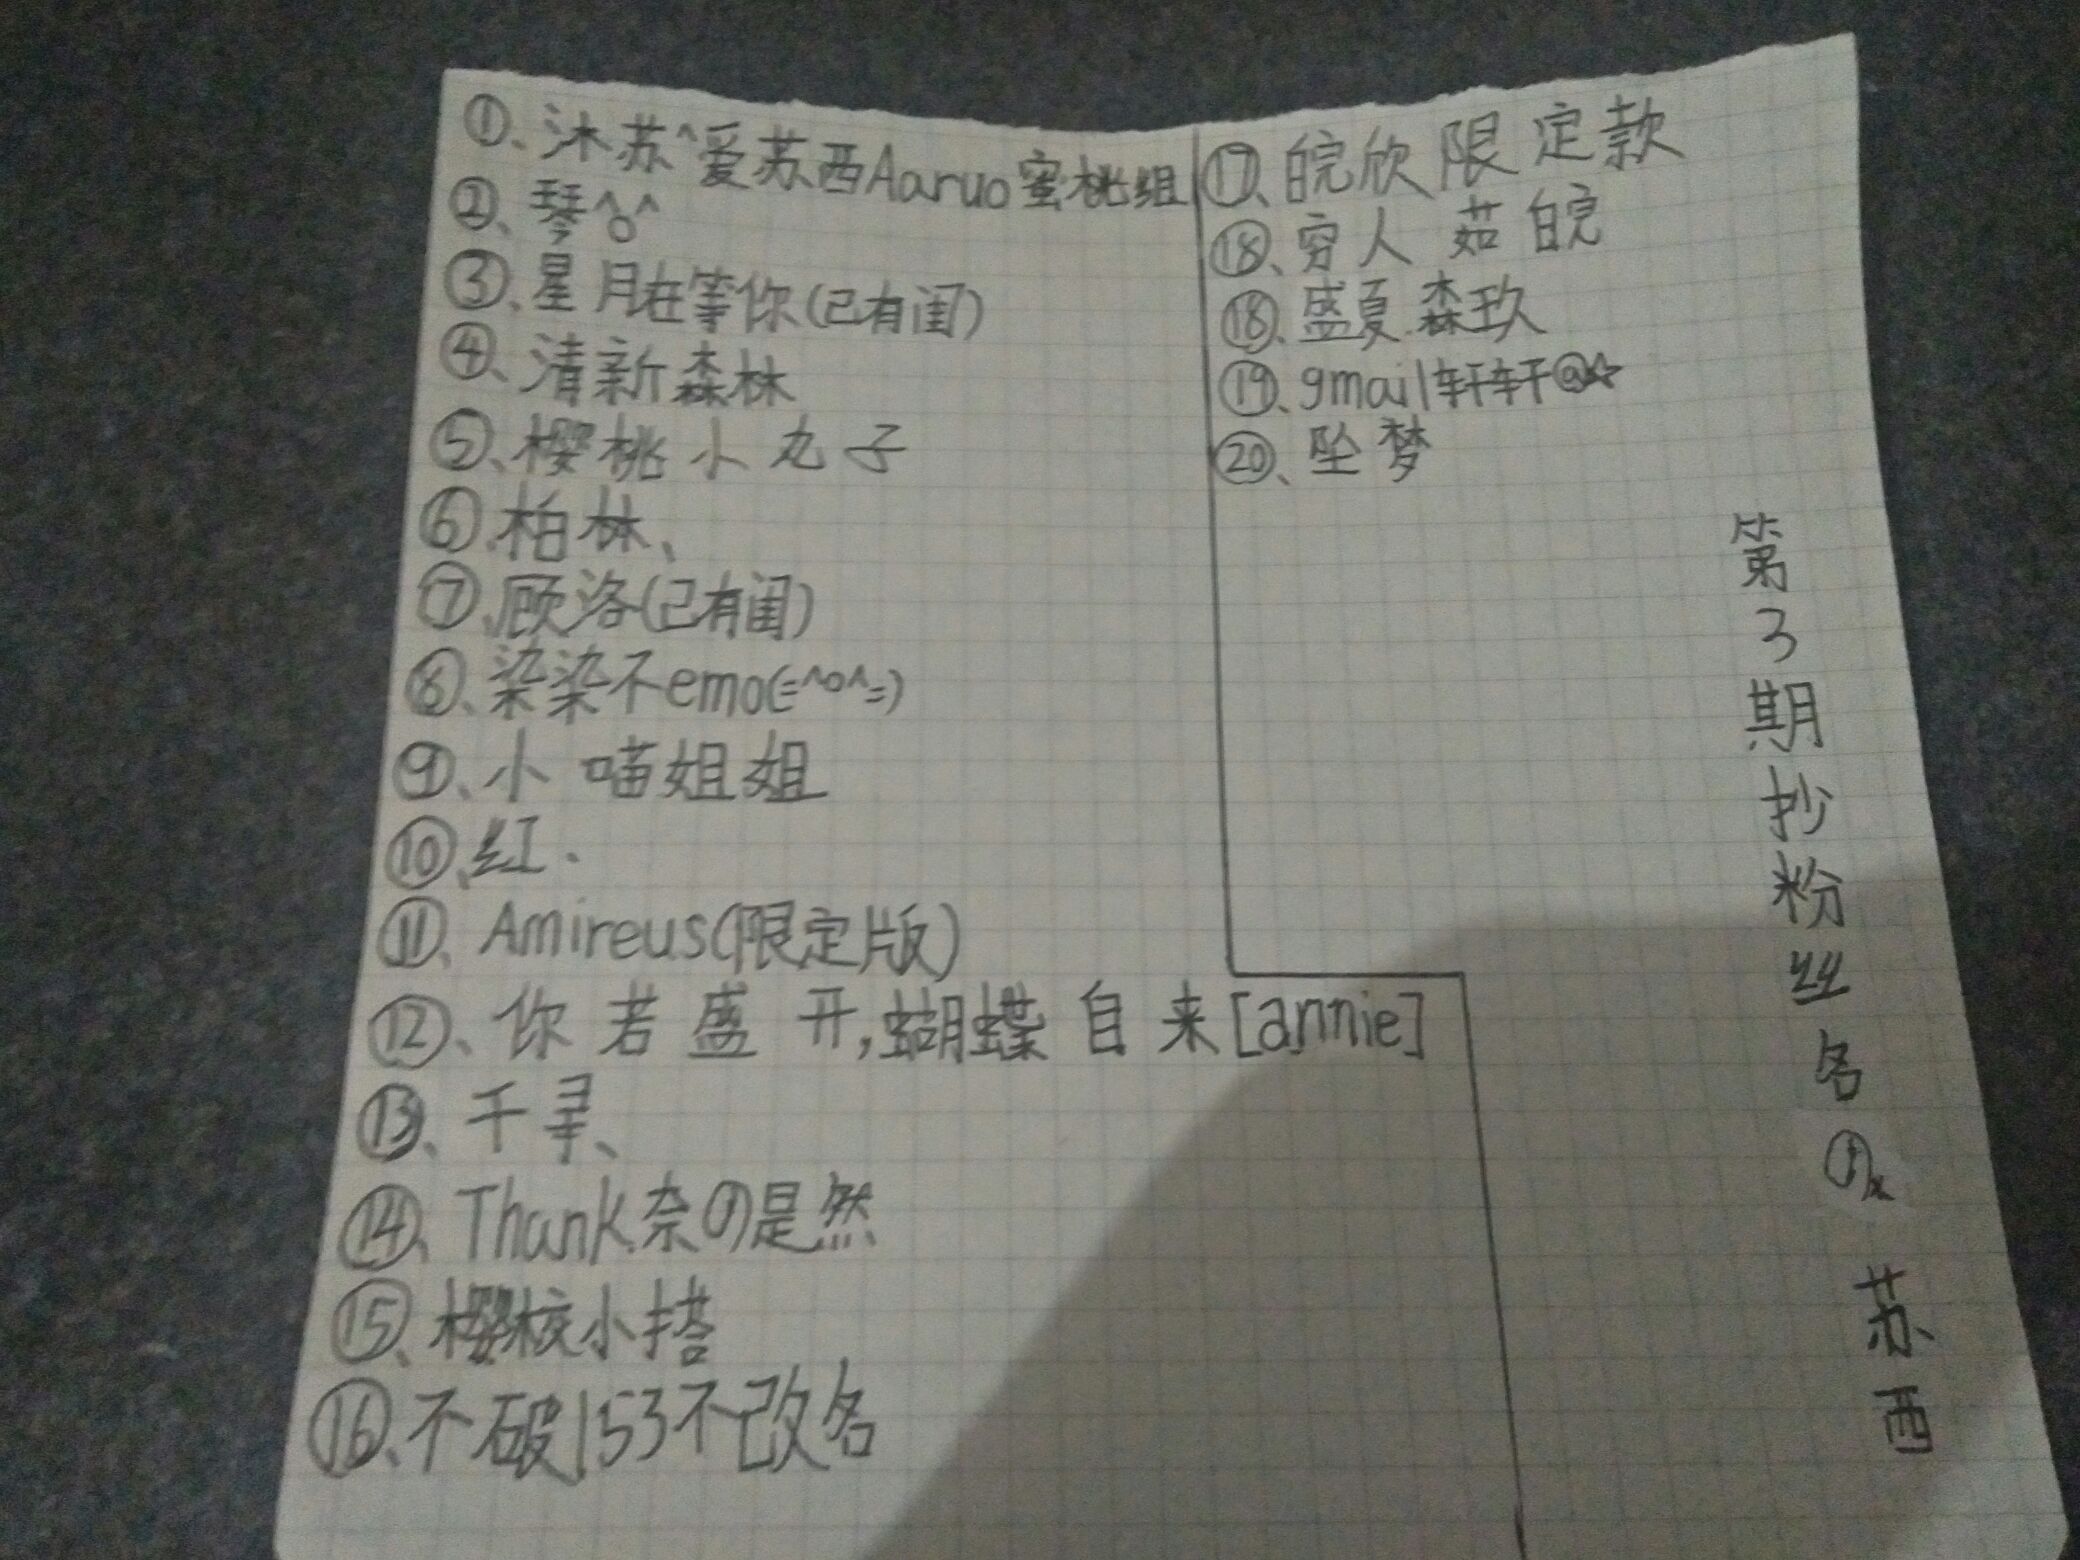 ①、沐苏^爱苏西Aaruo蜜桃组
②、琴^o^
③、星月在等你(已有闺)
④、清新森林
⑤、樱桃小丸子
⑥、柏林、
⑦、顾洛(已有闺)
⑧、染染不emo(=^o^=)
⑨、小喵姐姐
⑩、红.
⑪、Amireus(限定版)
⑫、你若盛开,蝴蝶自来[annie]
⑬、千寻、
⑭、Thank奈の是然
⑮、樱校小搭
⑯、不破153不改名
⑰、皖欣限定款
⑱、穷人 茹皖
⑱、盛夏.森玖
⑲、gmail轩轩@☆
⑳、坠梦
第3期抄粉丝名
苏西